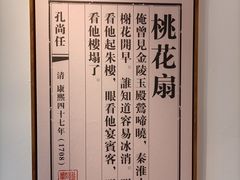 桃花扇
俺曾見金陵玉殿鶯啼曉，秦淮
榭花開早。誰知道容易冰消。
看他起朱樓，眼看他宴賓客，
看他樓塌了。
孔尚任
清 康熙四十七年（1708）